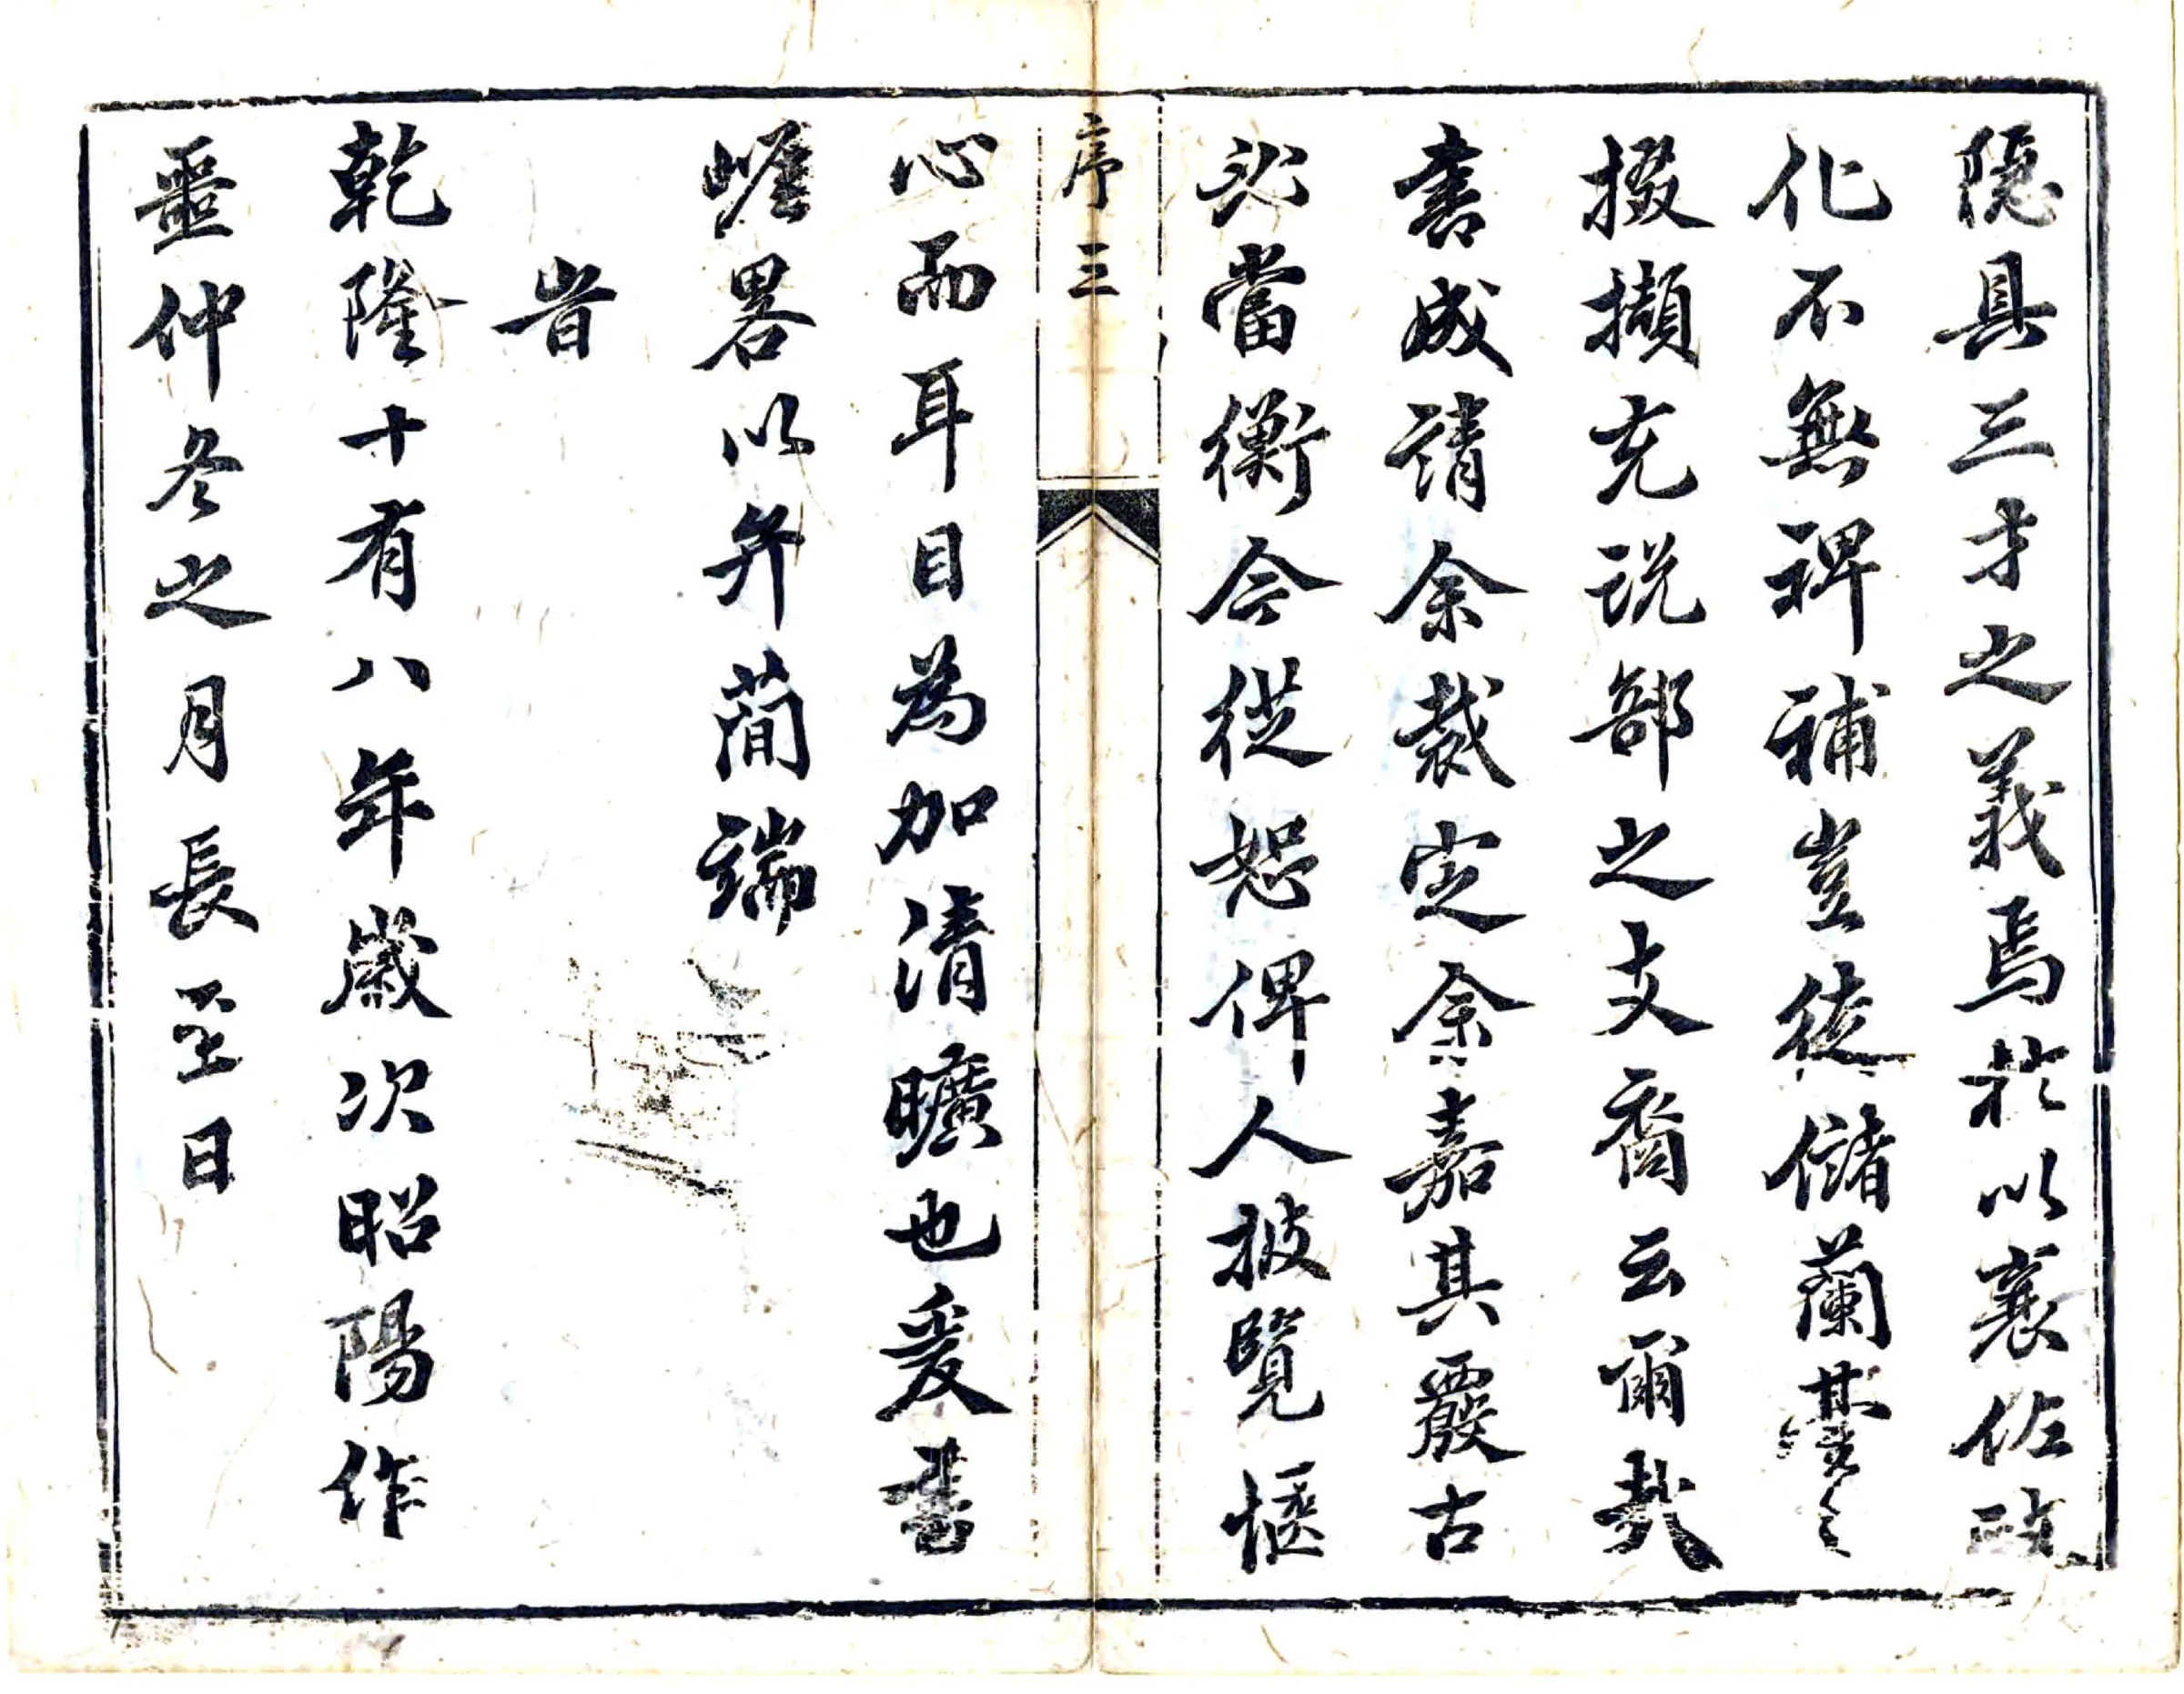 隱具三才之義焉於以襄佐政
化不無裨補豈徒儲蘭臺之
掇擷充説部之支裔云爾哉
書成請余裁定余嘉其覈古
必當衡今從恕俾人披覽愜
序三
心而耳目為加清曠也爰書
崕畧以弁蕳端
旹
乾隆十有八年歲次昭陽作
噩仲冬之月長至日